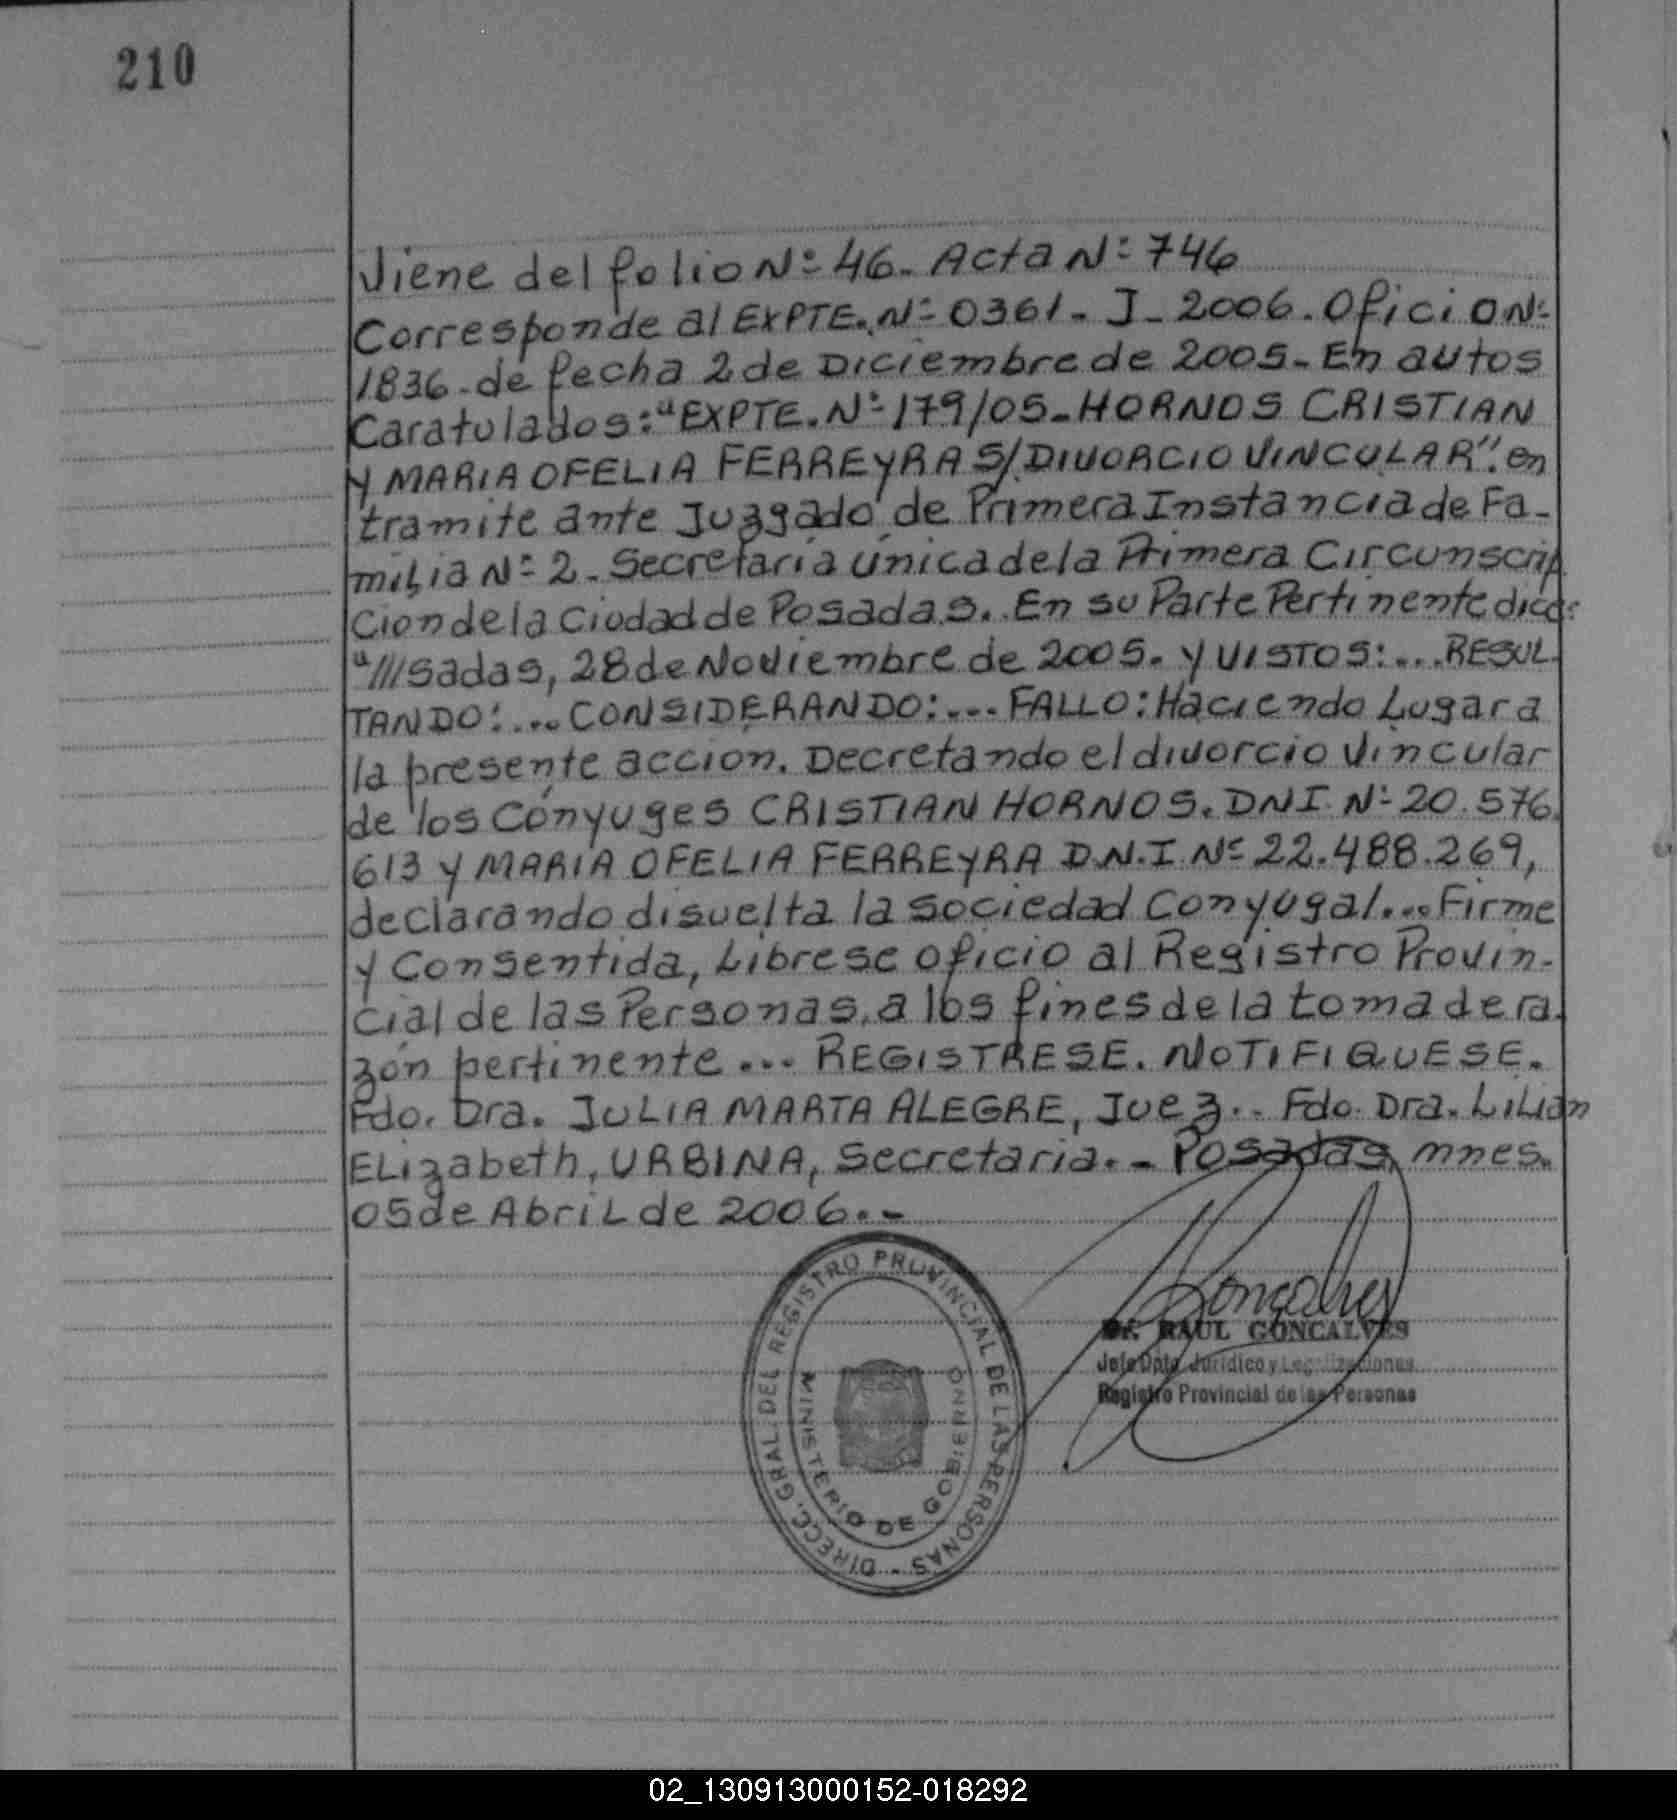 210
Viene del folio Nº 46. Acta Nº 746
Corresponde al EXPTE. Nº 0361. J_2006. Oficio Nº
1836. de fecha 2 de Diciembre de 2005. En autos
Caratulados: "EXPTE. Nº 179/05_HORNOS CRISTIAN
Y MARIA OFELIA FERREYRA S/DIVORCIO VINCULAR". en
tramite ante Juzgado de Primera Instancia de Fa-
milia Nº 2. Secretaría única de la Primera Circunscrip
Cion de la Ciudad de Posadas. En su Parte Pertinente dice:
"///sadas, 28 de Noviembre de 2005. Y VISTOS:...RESUL
TANDO:... CONSIDERANDO:... FALLO: Haciendo Lugar a
la presente acción. Decretando el divorcio Vincular
de los Cónyuges CRISTIAN HORNOS. DNI. Nº 20.576.
613 y MARIA OFELIA FERREYRA D.N.I. Nº 22.488.269,
declarando disuelta la Sociedad Conyugal... Firme
y Consentida, Librese oficio al Registro Provin-
cial de las Personas, a los fines de la toma de ra.
zón pertinente... REGISTRESE. NOTIFIQUESE.
Fdo. Dra. JULIA MARTA ALEGRE, Juez.. Fdo. Dra. Lilian
Elizabeth, URBINA, Secretaria.- Posadas, mnes.
05 de Abril de 2006.-
Goncalves
Dr. RAUL GONCALVES
Jefe Dpto. Jurídico y Legalizaciones
Registro Provincial de las Personas
DIRECC. GRAL. DEL REGISTRO PROVINCIAL DE LAS PERSONAS -
MINISTERIO DE GOBIERNO
02_130913000152-018292